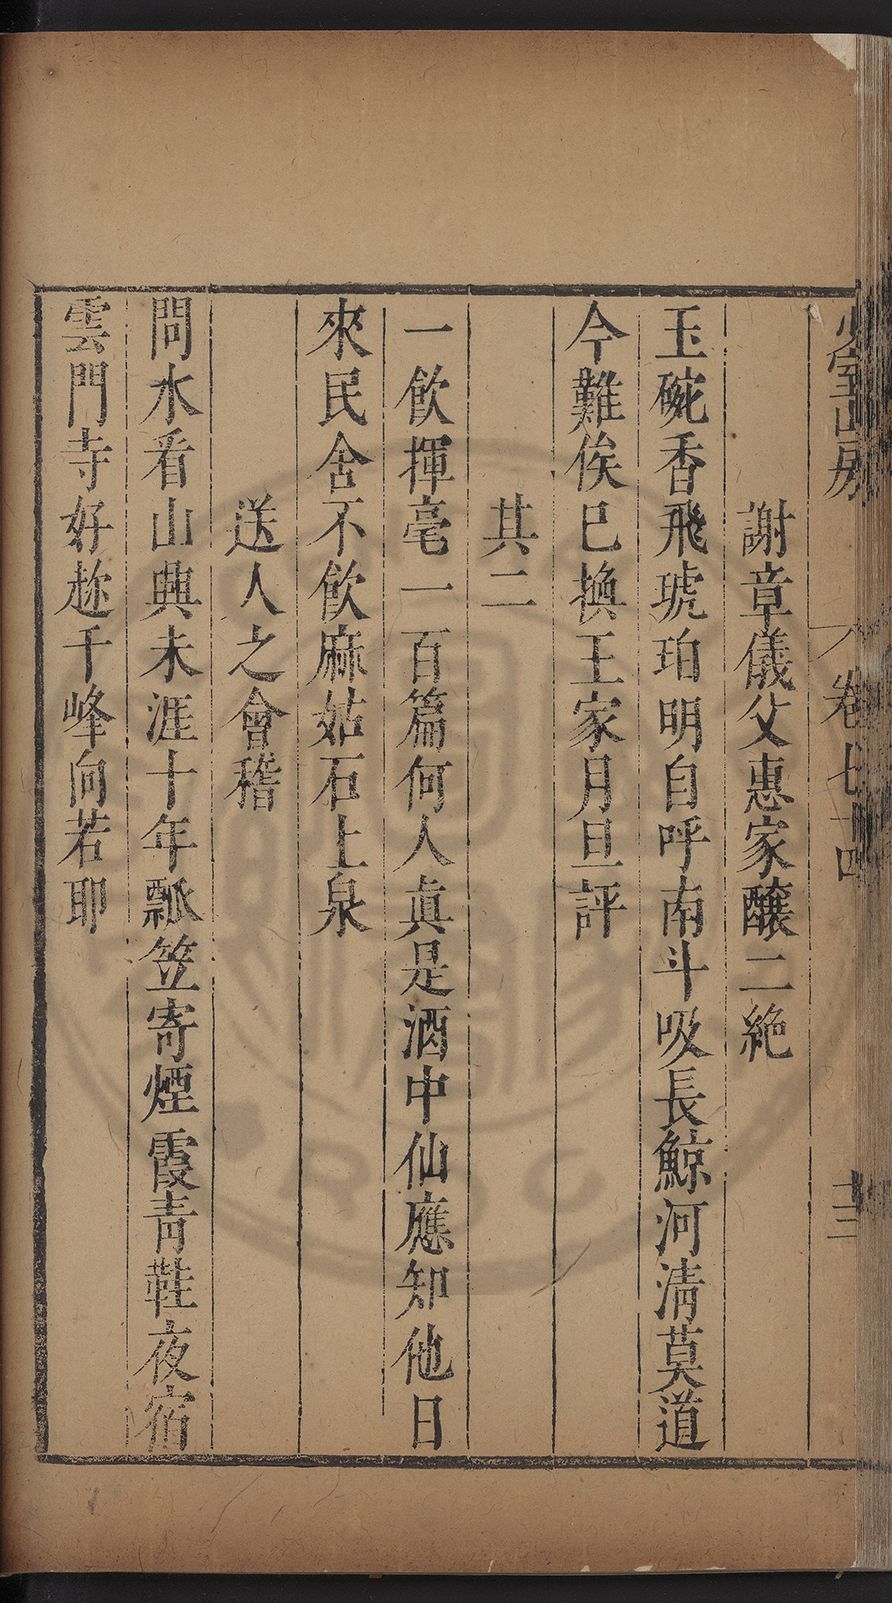 少室山房 卷七十四 十三
謝章儀父惠家釀二絶
玉碗香飛琥珀明自呼南斗吸長鯨河清莫道
今難俟已換王家月旦評
其二
一飲揮毫一百篇何人眞是酒中仙應知他日
來民舍不飲麻姑石上泉
送人之會稽
問水看山興未涯十年瓢笠寄煙霞靑鞋夜宿
雲門寺好趂千峰向若耶